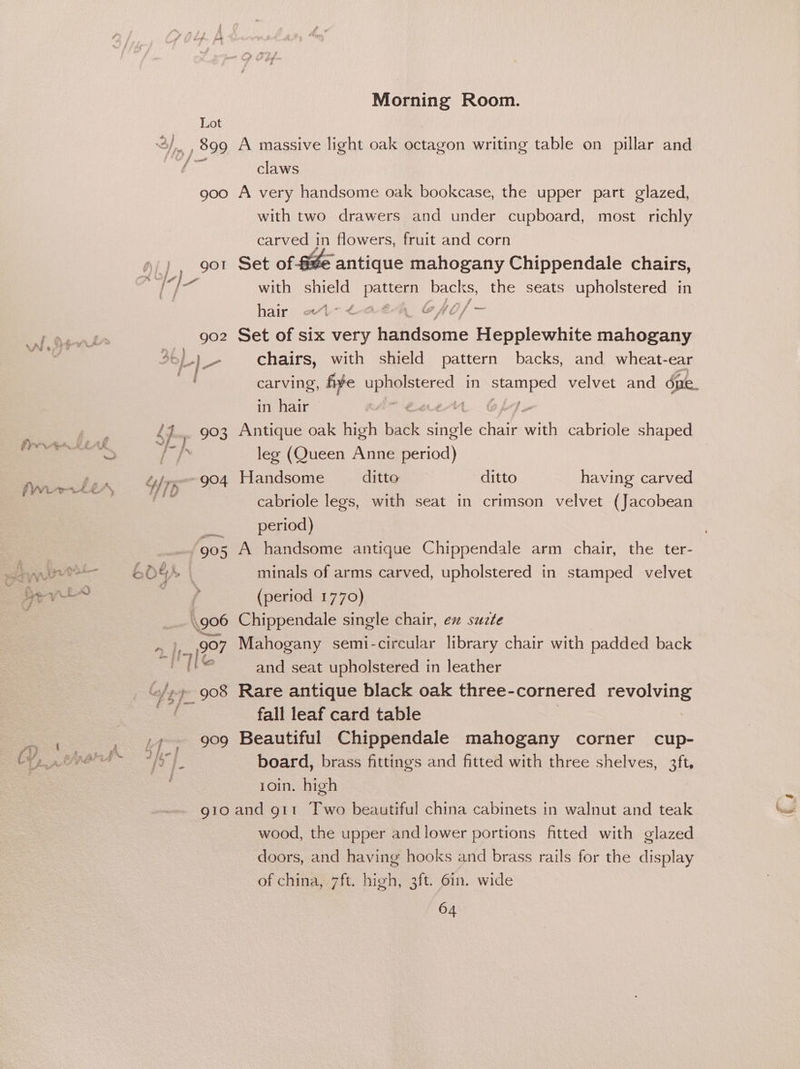 Morning Room.
Lot
899 A massive light oak octagon writing table on pillar and
claws
900 A very handsome oak bookcase, the upper part glazed,
with two drawers and under cupboard, most richly
carved in flowers, fruit and corn
901 Set of antique mahogany Chippendale chairs,
with shield pattern backs, the seats upholstered in
hair
902 Set of six very handsome Hepplewhite mahogany
chairs, with shield pattern backs, and wheat-ear
carving, five upholstered in stamped velvet and one
in hair
903 Antique oak high back single chair with cabriole shaped
leg (Queen Anne period)
904 Handsome ditto ditto having carved
cabriole legs, with seat in crimson velvet (Jacobean
period)
905 A handsome antique Chippendale arm chair, the ter-
minals of arms carved, upholstered in stamped velvet
(period 1770)
906 Chippendale single chair, en suite
907 Mahogany semi-circular library chair with padded back
and seat upholstered in leather
908 Rare antique black oak three-cornered revolving
fall leaf card table
909 Beautiful Chippendale mahogany corner cup-
board, brass fittings and fitted with three shelves, 3ft.
10in. high
910 and 911 Two beautiful china cabinets in walnut and teak
wood, the upper and lower portions fitted with glazed
doors, and having hooks and brass rails for the display
of china, 7ft. high, 3ft. 6in. wide
64